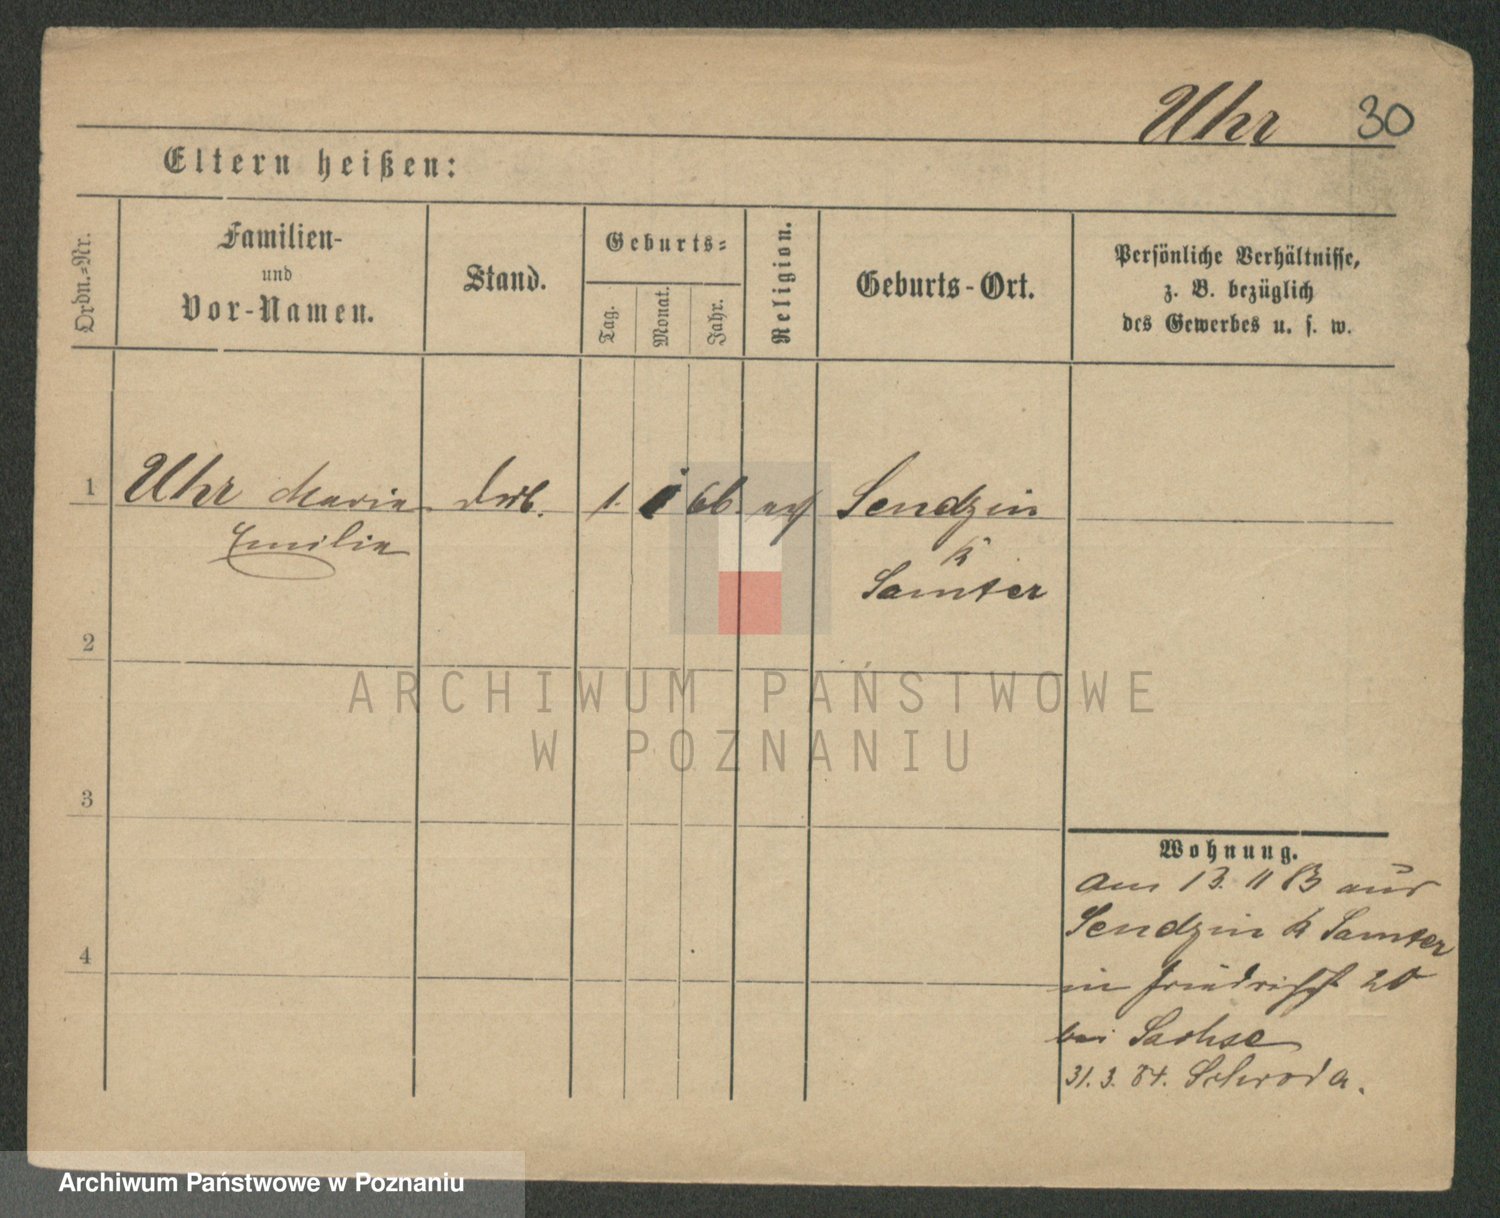 Uhr 30
Eltern heißen:
Ordn.=Nr.
Familien-
und
Vor-Namen.
Stand.
Geburts=
Tag.
Monat.
Jahr.
Religion.
Geburts-Ort.
Persönliche Verhältnisse,
z. B. bezüglich
des Gewerbes u. s. w.
1 Uhr Marie 1. 66. Sendzin
Emilie
K
Samter
2
ARCHIWUM PAŃSTWOWE
W POZNANIU
3
4
Wohnung.
am 13. 11 83 aus
Sendzin K Samter
in Friedrichst 20
bei Sachse
31. 3. 84. Schroda.
Archiwum Państwowe w Poznaniu